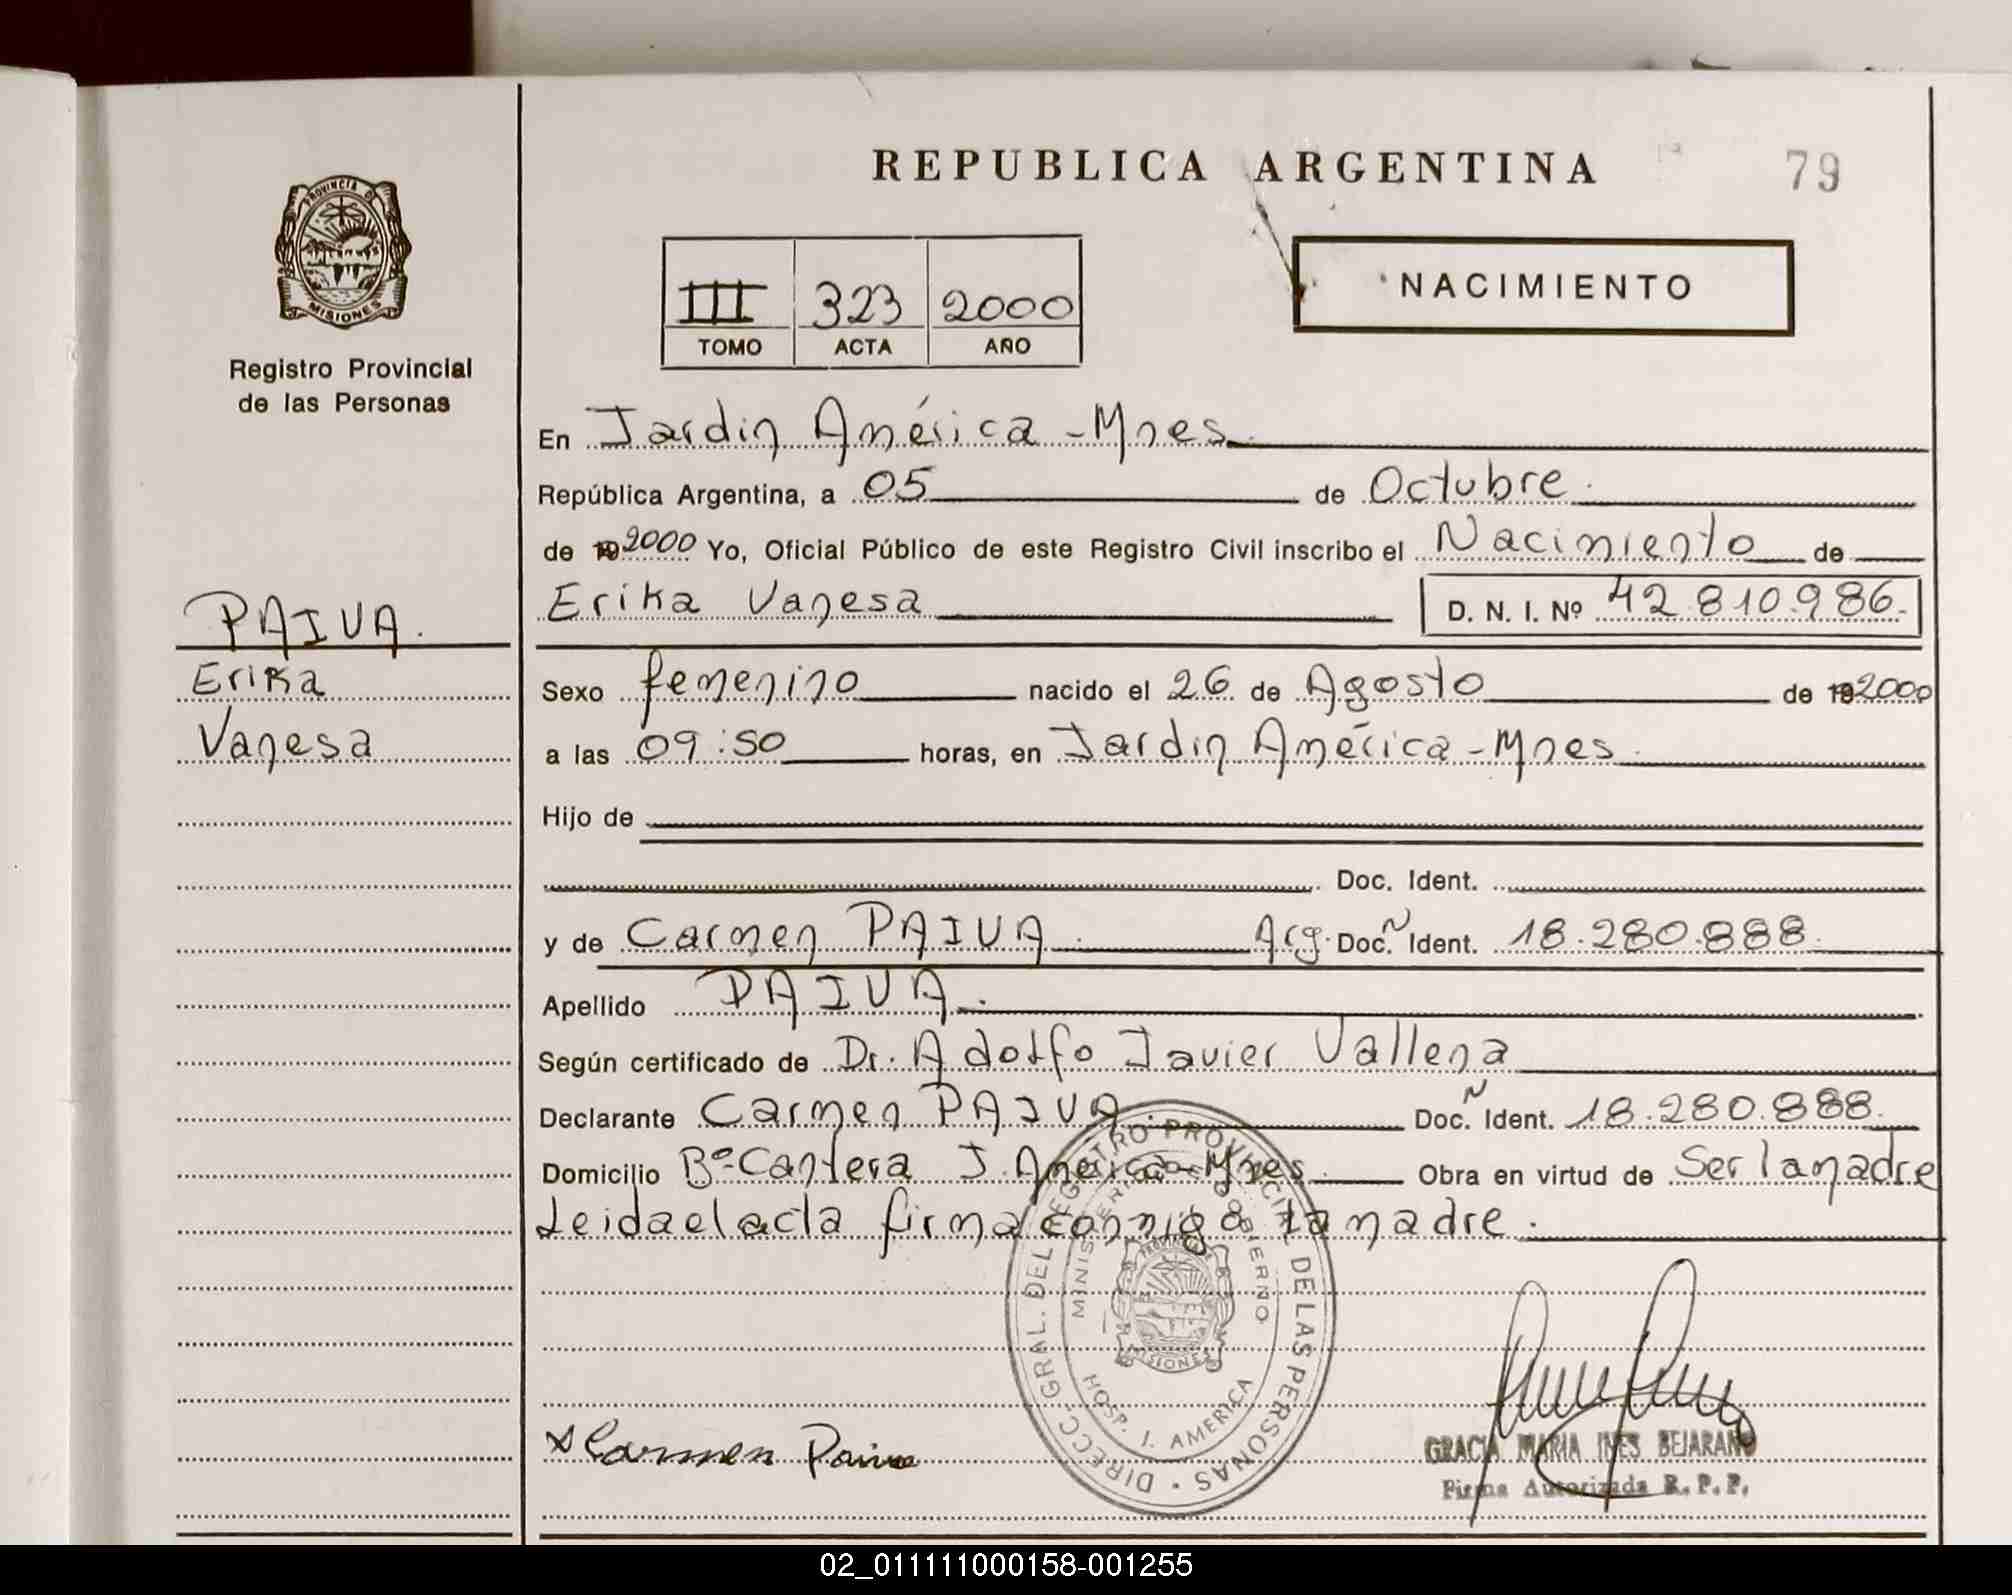 REPUBLICA ARGENTINA
79
PROVINCIA DE
MISIONES
Registro Provincial
de las Personas
III 323 2000
TOMO ACTA AÑO
NACIMIENTO
En Jardin América - Mnes.
República Argentina, a 05 de Octubre.
de 19 2000 Yo, Oficial Público de este Registro Civil inscribo el Nacimiento de
Erika Vanesa D. N. I. Nº 42.810.986.
PAIVA.
Erika
Vanesa
Sexo femenino nacido el 26 de Agosto de 19 2000
a las 09:50 horas, en Jardin América - Mnes.
Hijo de
Doc. Ident.
y de Carmen PAIVA. Arg. Doc. Ident. 18.280.888.
Apellido PAIVA.
Según certificado de Dr. Adolfo Javier Vallena
Declarante Carmen PAIVA. Doc. Ident. 18.280.888.
Domicilio Bº Cantera J. América - Mnes. Obra en virtud de Ser la madre
Leida el acta firma conmigo la madre.
DIRECC. GRAL. DEL REGISTRO PROVINCIAL DE LAS PERSONAS
MINISTERIO DE GOBIERNO
HOSP. J. AMERICA
MISIONES
Carmen Paiva
GRACIA MARIA INES BEJARANO
Firma Autorizada R. P. P.
02_011111000158-001255